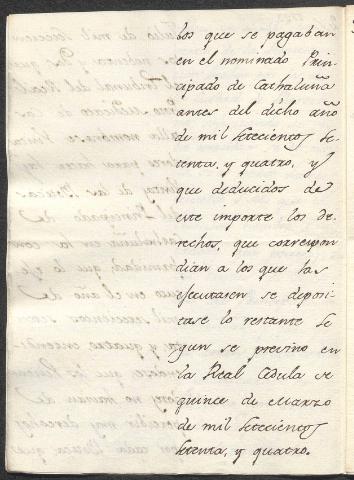 los que se pagaban
en el nominado Prin-
cipado de Cathaluña
antes del dicho año
de mil setecientos se-
tenta, y quatro, y
que deducidos de
este importe los de-
rechos, que correspon
dian a los que las
executasen se deposi-
tase lo restante se
gun se previno en
la Real Cedula de
quince de Marzo
de mil setecientos
setenta, y quatro.